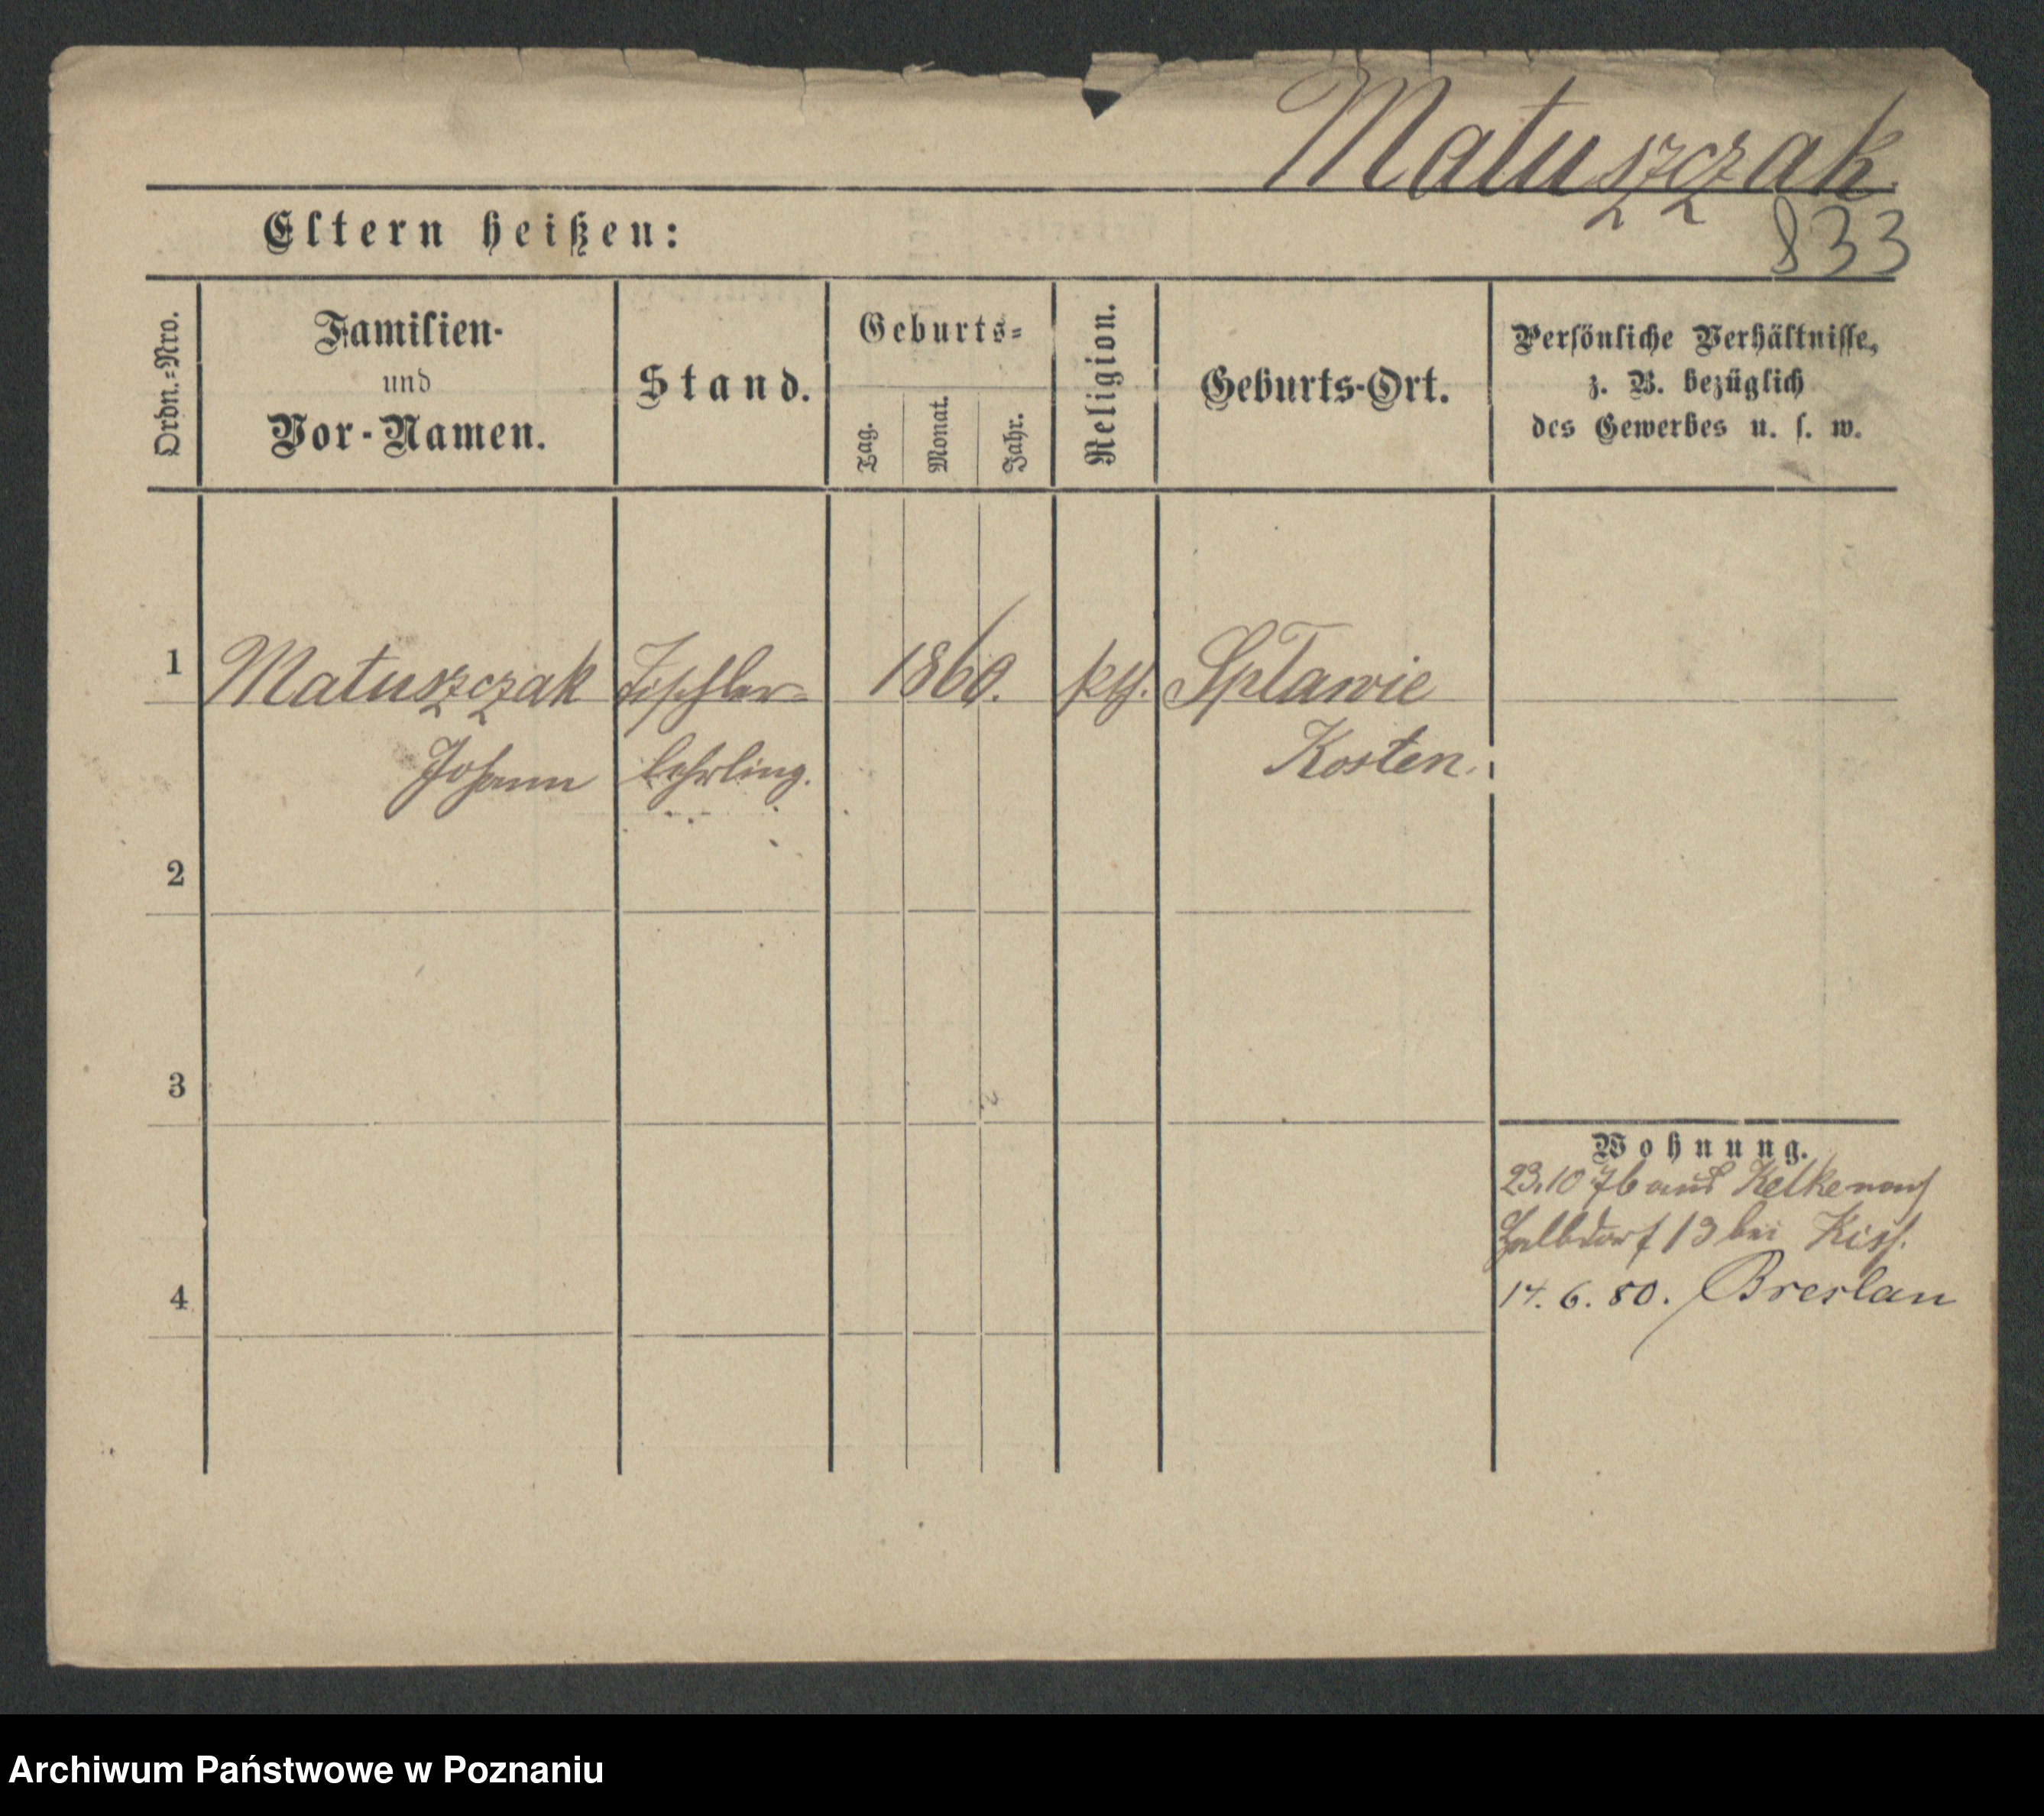 Matuszczak.
833
Eltern heißen:
Ordn.-Nro.
Familien-
und
Vor-Namen.
Stand.
Geburts-
Tag.
Monat.
Jahr.
Religion.
Geburts-Ort.
Persönliche Verhältnisse,
z. B. bezüglich
des Gewerbes u. s. w.
1 Matuszczak Tischler- 1860. kth. Spławie
Johann lehrling. Kosten.
2
3
Wohnung.
23.10 76 aus nach
13 bei
4
14. 6. 80. Breslau
Archiwum Państwowe w Poznaniu